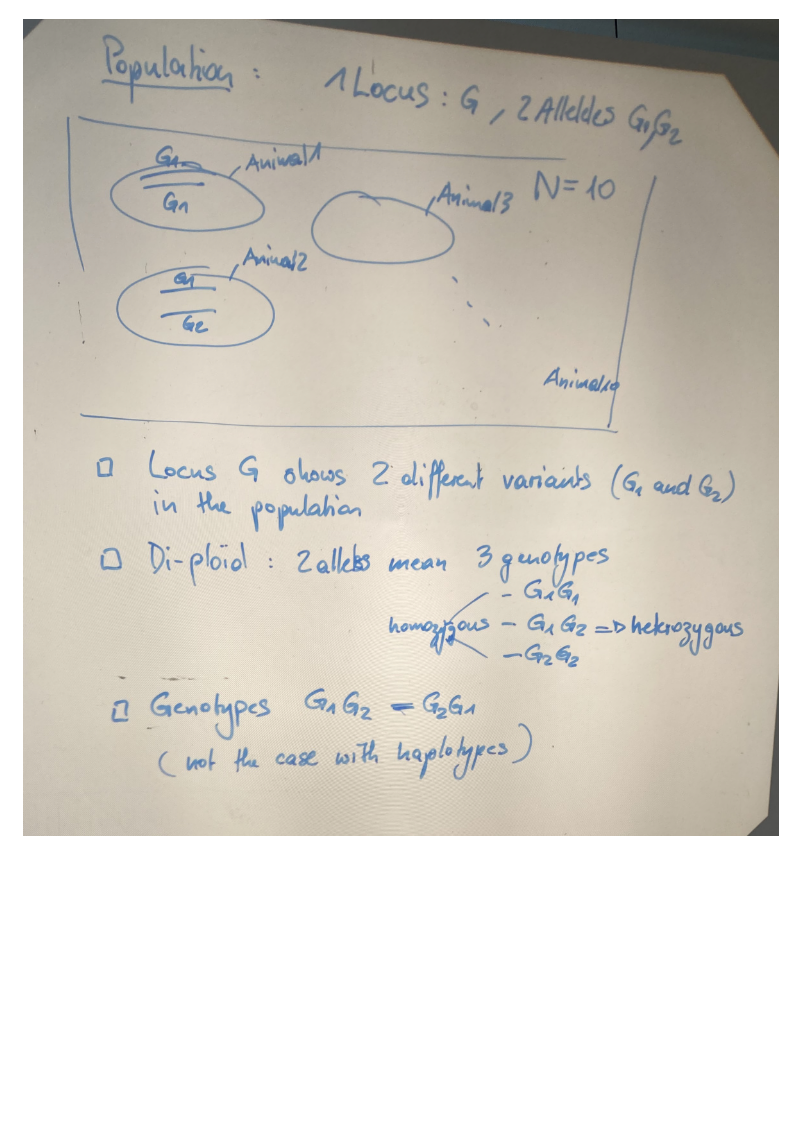 Population : 1 Locus : G , 2 Alleldes G1,G2
G1 Animal 1
G1
Animal 3 N = 10
Animal 2
G1
G2
Animal 10
□ Locus G shows 2 different variants (G1 and G2)
in the population
□ Di-ploïd : 2 alleles mean 3 genotypes
- G1G1
homozygous - G1 G2 => heterozygous
- G2 G2
□ Genotypes G1 G2 = G2G1
( not the case with haplotypes )